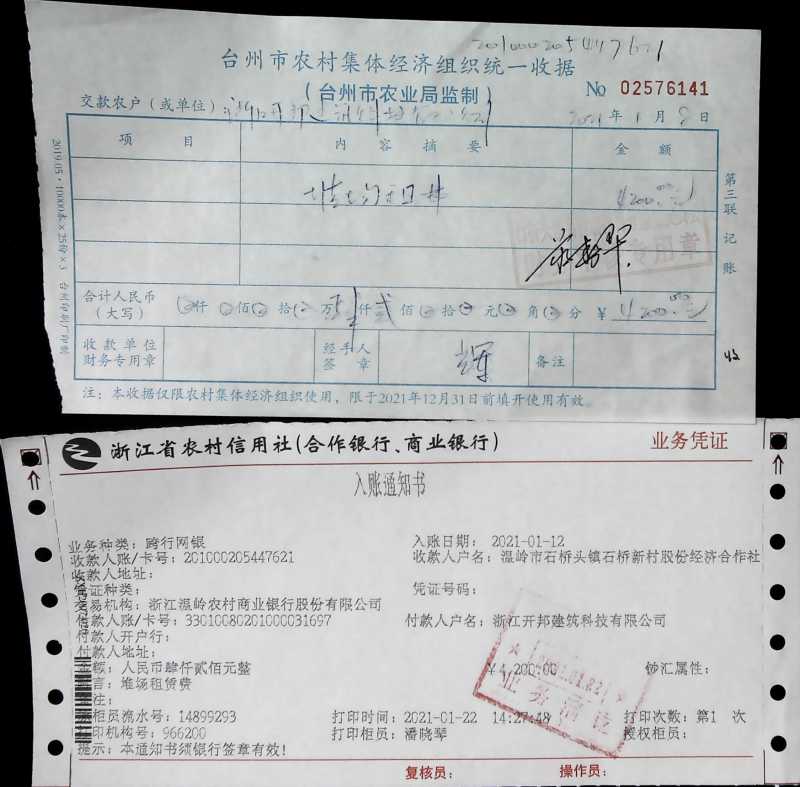 201000205447621
台州市农村集体经济组织统一收据
(台州市农业局监制)
No 02576141
交款农户(或单位): 2021年1月8日
项目 内容摘要 金额
4200.00元
合计人民币(大写) 仟 佰 拾 万 肆仟 贰佰 拾 元 角 分 ¥ 4200.00元
收款单位财务专用章 经手人签章 辉 备注
注:本收据仅限农村集体经济组织使用,限于2021年12月31日前填开使用有效。
第三联 记账
收
浙江省农村信用社(合作银行、商业银行) 业务凭证
入账通知书
业务种类:跨行网银 入账日期: 2021-01-12
收款人账/卡号:201000205447621 收款人户名:温岭市石桥头镇石桥新村股份经济合作社
收款人地址:
凭证种类: 凭证号码:
交易机构:浙江温岭农村商业银行股份有限公司
付款人账/卡号:33010080201000031697 付款人户名:浙江开邦建筑科技有限公司
付款人开户行:
付款人地址:
金额:人民币肆仟贰佰元整 ¥4,200.00 钞汇属性:
附言:堆场租赁费
备注:
柜员流水号:14899293 打印时间:2021-01-22 14:27:48 打印次数:第1 次
打印机构号:966200 打印柜员:潘晓琴 授权柜员:
提示:本通知书须银行签章有效!
复核员: 操作员: